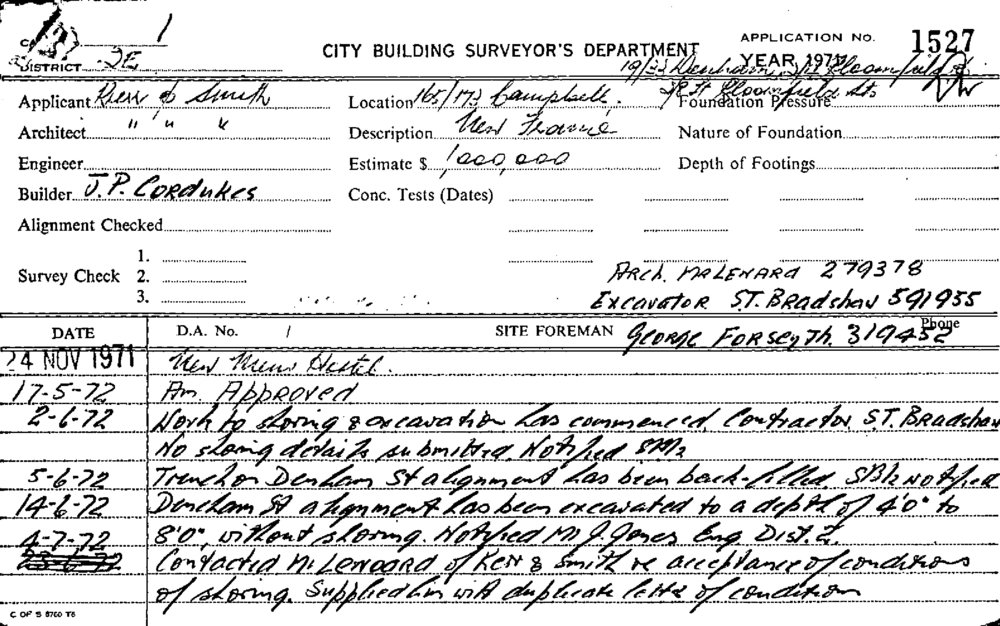 1
DISTRICT 2E
CITY BUILDING SURVEYOR'S DEPARTMENT
APPLICATION NO. 1527
YEAR 1971
19/33 Denham, Bloomfield
Bloomfield Sts
Applicant Kerr & Smith
Location 165/173 Campbell.
Foundation Pressure
Architect " " "
Description New
Nature of Foundation
Engineer
Estimate $ 1,000,000
Depth of Footings
Builder J.P. Cordukes
Conc. Tests (Dates)
Alignment Checked
Survey Check 1.
2.
3.
Arch. 279378
Excavator S.T. Bradshaw 591955
DATE
D.A. No. /
SITE FOREMAN George Forseyth. 319452
Phone
24 NOV 1971 New Mens Hostel.
17-5-72 Am. Approved
2-6-72 Work to shoring & excavation has commenced. Contractor S.T. Bradshaw
No shoring details submitted. Notified
5-6-72 Trench on Denham St alignment has been back-filled. Notified
14-6-72 Denham St alignment has been excavated to a depth of 4'0" to
8'0", without shoring. Notified Mr J. Jones Eng. Dist. 2.
4-7-72 Contacted Mr Lenoard of Kerr & Smith re acceptance of conditions
of shoring. Supplied him with duplicate letter of condition
C OF S 8760 T6